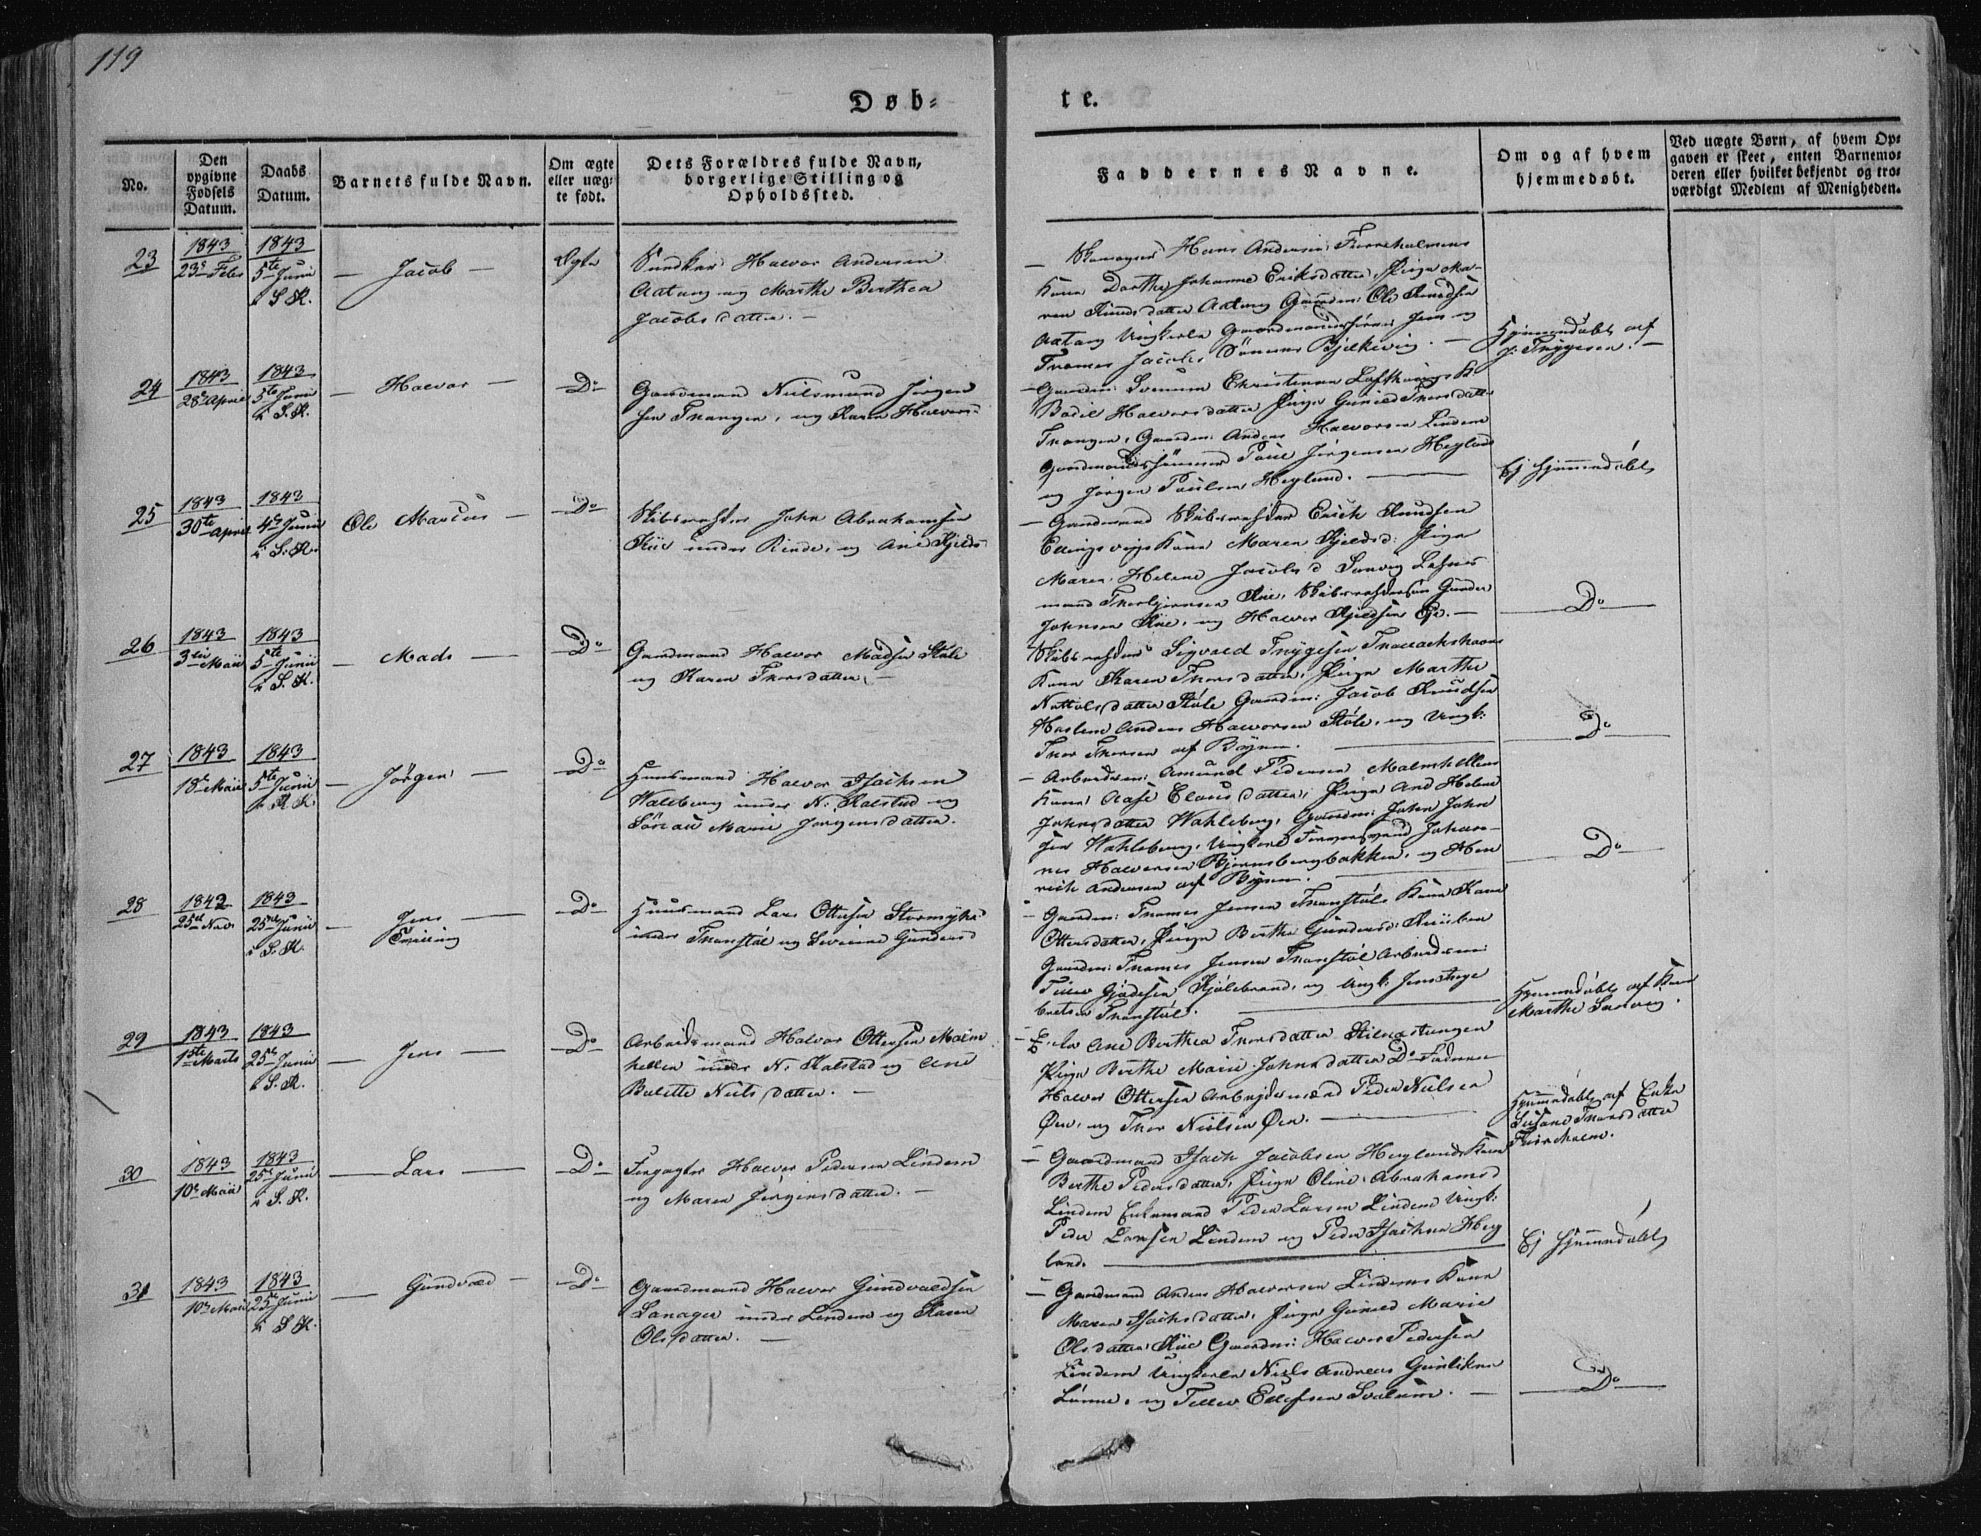 119
Døb=
te.
No.
Den opgivne Fødsels Datum.
Daabs Datum.
Barnets fulde Navn.
Om ægte eller uægte født.
Dets Forældres fulde Navn, borgerlige Stilling og Opholdssted.
Faddernes Navne.
Om og af hvem hjemmedøbt.
Ved uægte Børn, af hvem Opgaven er skeet, enten Barnemoderen eller hvilket bekjendt og troværdigt Medlem af Menigheden.
23
1843
23de Febr
1843
5te Junii
i S.K.
Jacob
Ægte
Halvor Andersen
Aatang og Marthe Berthea
Jacobsdatter.
Hans Andersen
Kone Dorthe Johanne Eriksdatter, Pige Ma-
ren Knudsdatter Aatang Gaardm: Ole Knudsen
Aatang Ungkarle Gaardmandssønner Jens og
Thomas Jacobs Sønner Bjelkevig.
Hjemmedøbt af
J: Trygesen.
24
1843
28de April
1843
5te Junii
i S.K.
Halvor
Do
Gaardmand Nielsmund Jørgen
sen Tvangen, og Karen Halvors
Bodil Halvorsdatter Pige Gunild Thorsdatter
Tvangen, Gaardm: Anders Halvorsen Lindem
Gaardmandssønner Poul Jørgensen Heglund
og Jørgen Poulsen Heglund.
Ej hjemmedøbt
25
1843
30te April
1843
4de Junii
i S.K.
Ole Marcus
Do
John Abrahamsen
Kiil under Rinde, og Ane Kjelds
Gaardmand Erich Knudsen
Kone Maren Kjeldsd: Pige
Maren Helene Jacobsd
mand Thorbjørnsen
Johnsen og Halvor Kjeldsen
Do
26
1843
3die Maii
1843
5te Junii
i S.K.
Mads
Do
Gaardmand Halvor Madsen Støle
og Karen Thorsdatter
Sigvald Trygesen
Kone Karen Thorsdatter, Pige Marthe
Støle Gaardm: Jacob Knudsen
Anders Halvorsen Støle, og Ungk:
Thor Thorsen af Byen.
Do
27
1843
18de Maii
1843
5te Junii
i S.K.
Jørgen
Do
Huusmand Halvor Isachsen
Waleberg under N. Kalstad og
Marie Jørgensdatter.
Arbeidsm: Amund Pedersen Malmhellen
Kone Aase Clausdatter, Pige Ane Helene
Johnsdatter Wahleberg, Gaardm: John John
sen Wahleberg, Ungkarl Johan-
nes Halvorsen Bjørnsbergbakken, og Hen
rich Andersen af Byen.
Do
28
1842
25de Nov.
1843
25de Junii
i S.K.
Jens
Tvilling
Do
Huusmand Lars Ottersen Stormyhr
under Transtøl og Severine Gundersd
Gaardm: Thomas Jensen Transtøls Kone Karen
Ottersdatter, Pige Berthe Gundersd:
Gaardm: Thomas Jensen Transtøl Arbeidsm:
Tellev Gjødesen Kjølebrønd, og Ungk: Jens Inge
bretsen Transtøl.
Hjemmedøbt af Kone
Marthe Sanvig.
29
1843
1ste Marts
1843
25de Junii
i S.K.
Jens
Do
Arbeidsmand Halvor Ottersen Malm
hellen under N. Kalstad og Ane
Bolette Nielsdatter.
Enke Ane Berthea Thorsdatter
Pige Berthe Marie Johnsdatter Do Faderen
Halvor Ottersen Arbejdsmænd Peder Nielsen
Øen, og Thor Nielsen Øen.
Hjemmedøbt af Enke
Susane Thorsdatter
30
1843
10de Maii
1843
25de Junii
i S.K.
Lars
Do
Forpagter Halvor Pedersen Lindem
og Maren Jørgensdatter.
Gaardmand Isach Jacobsen Heglunds Kone
Berthe Pedersdatter, Pige Oline Abrahamsd
Lindem Enkemand Peder Larsen Lindem Ungk:
Peder Larsen Lindem og Peder Isachsen Heg
lund.
Ej hjemmedøbt
31
1843
10de Maii
1843
25de Junii
i S.K.
Gundvald
Do
Gaardmand Halvor Gundvaldsen
Lanager under Lindem og Karen
Olsdatter.
Gaardmand Anders Halvorsen Lindems Kone
Maren Isachsdatter, Pige Gunild Marie
Olsdatter Gaardm: Halvor Pedersen
Lindem Ungkarle Niels Andreas
og Tellev Ellefsen
Do